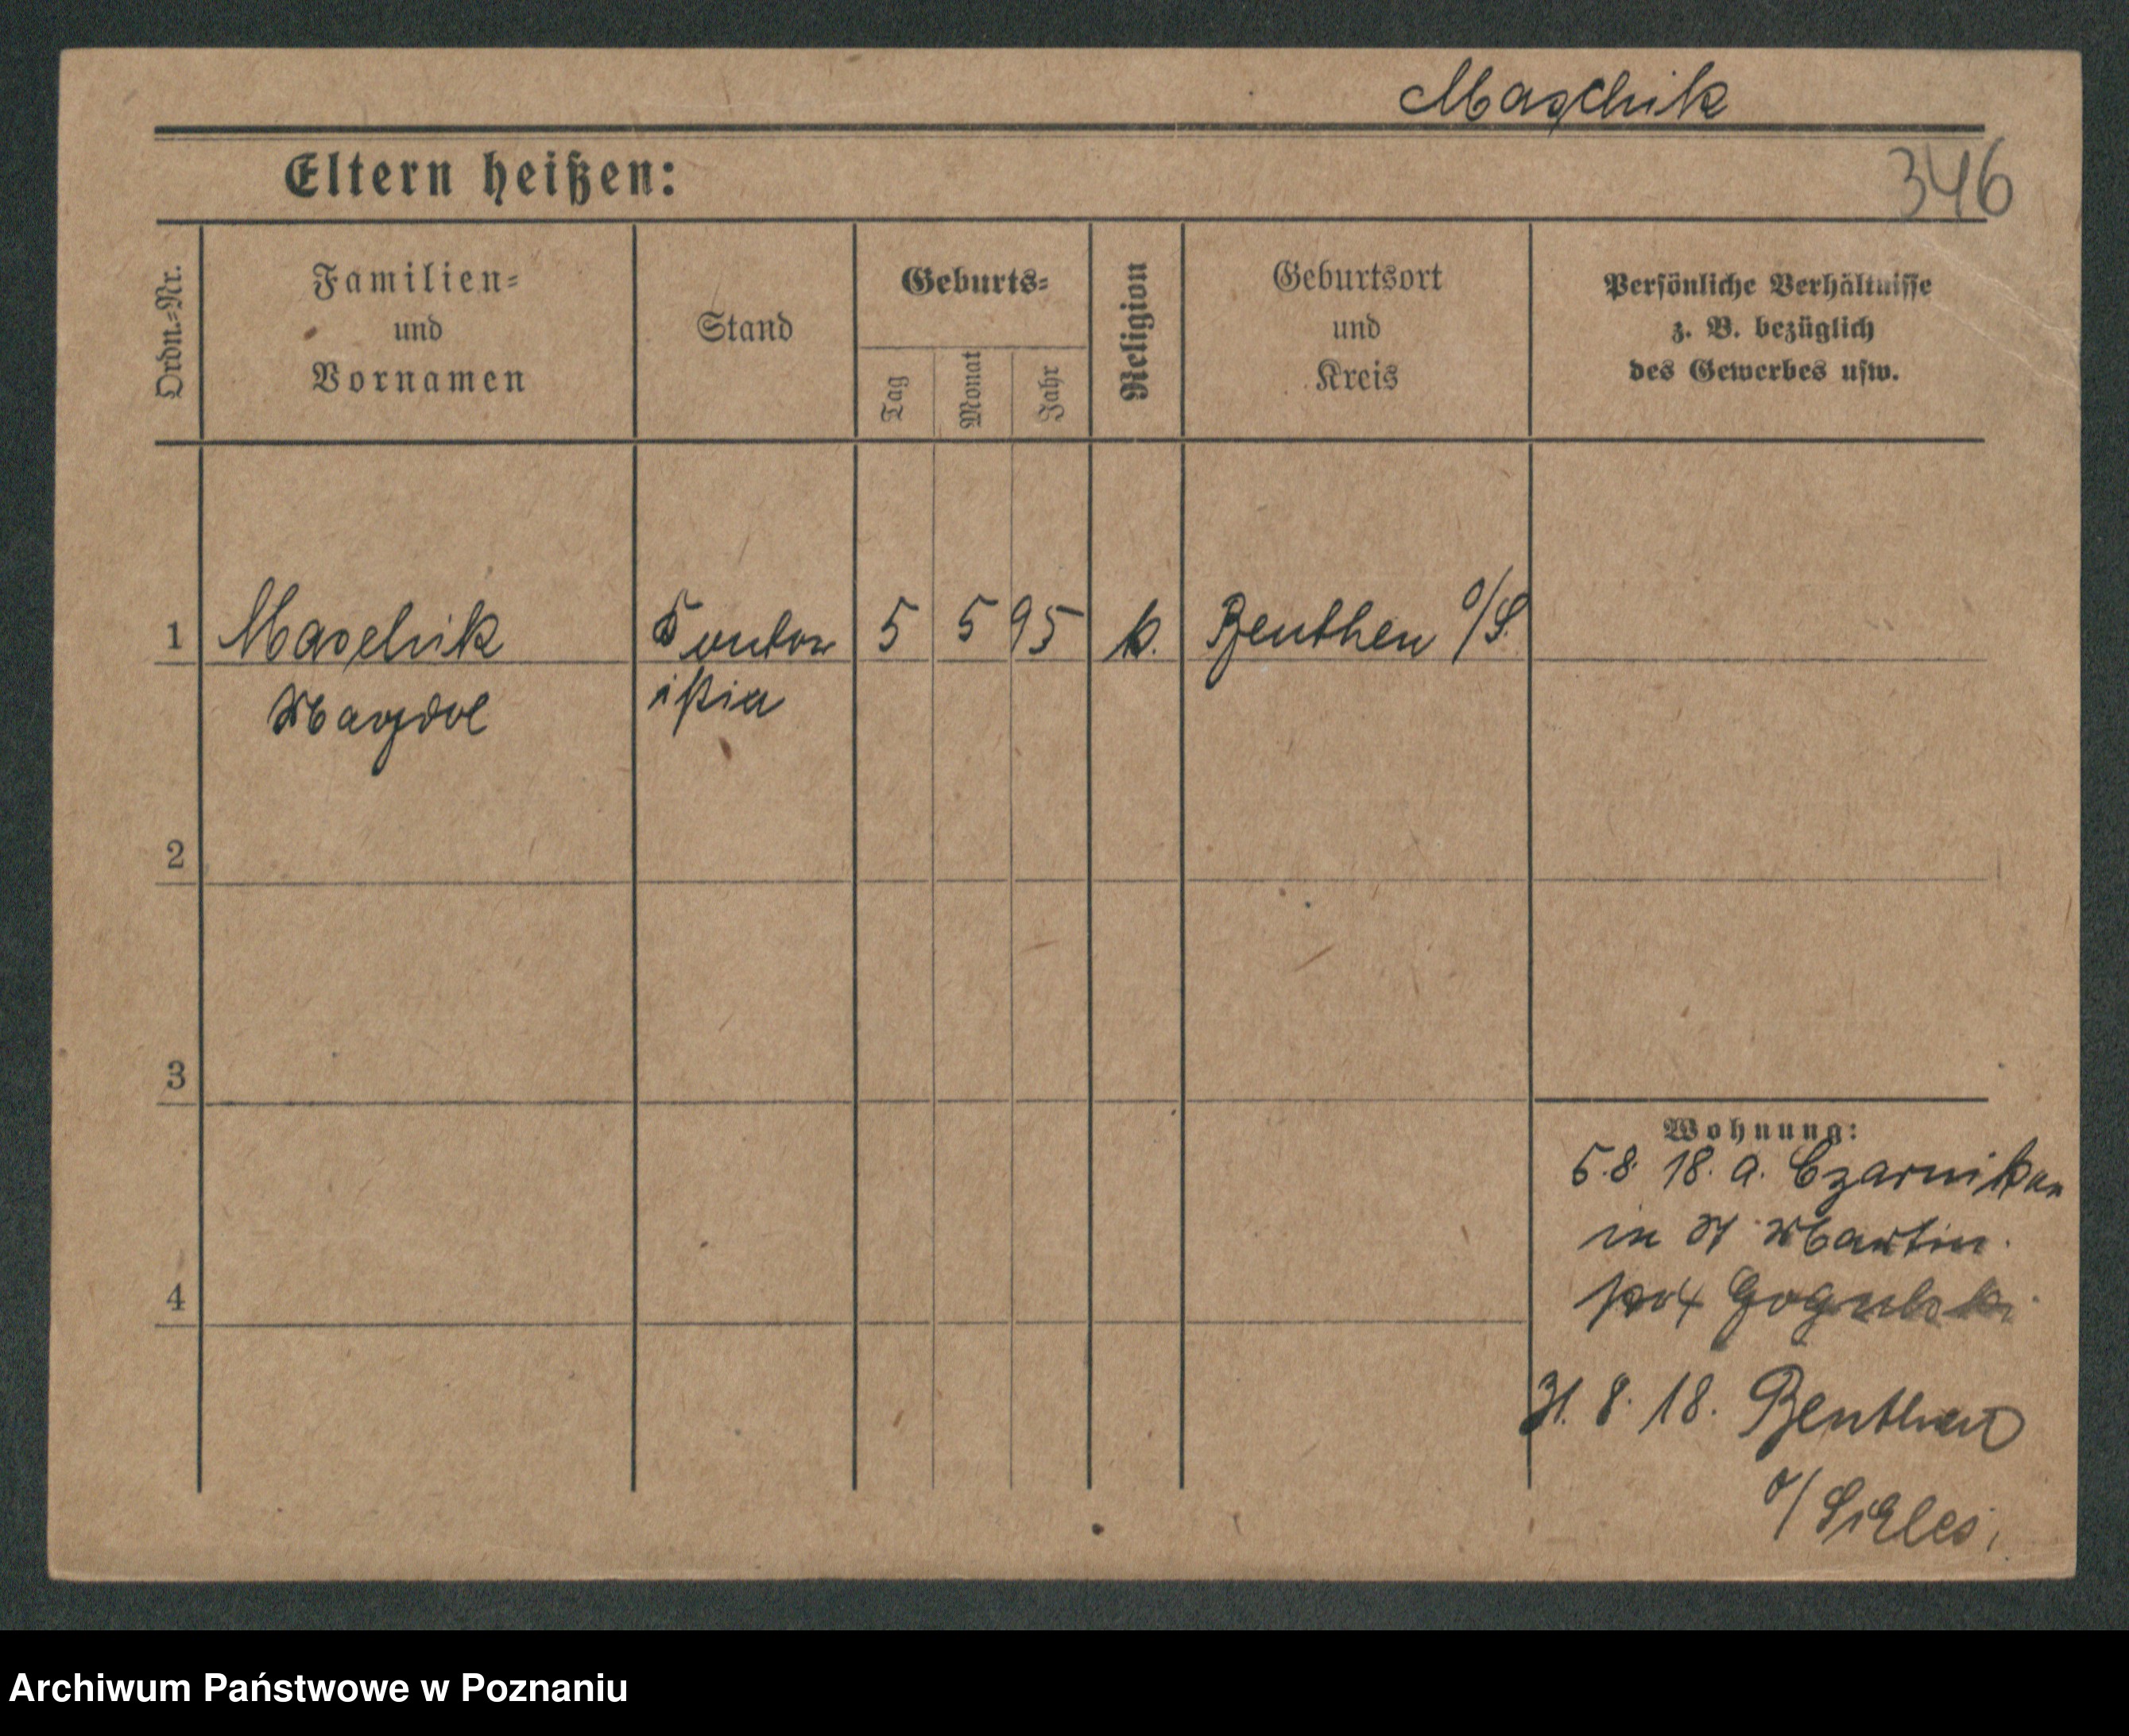 Maschik
346
Eltern heißen:
Ordn.=Nr.
Familien=
und
Vornamen
Stand
Geburts=
Tag
Monat
Jahr
Religion
Geburtsort
und
Kreis
Persönliche Verhältnisse
z. B. bezüglich
des Gewerbes usw.
1 Maschik 5 5 95 k. Beuthen O/S.
Magdal
2
3
4
Wohnung:
5.8. 18. a. Czarnikau
in St Martin
31. 8. 18. Beuthen
O/Schles.
Archiwum Państwowe w Poznaniu